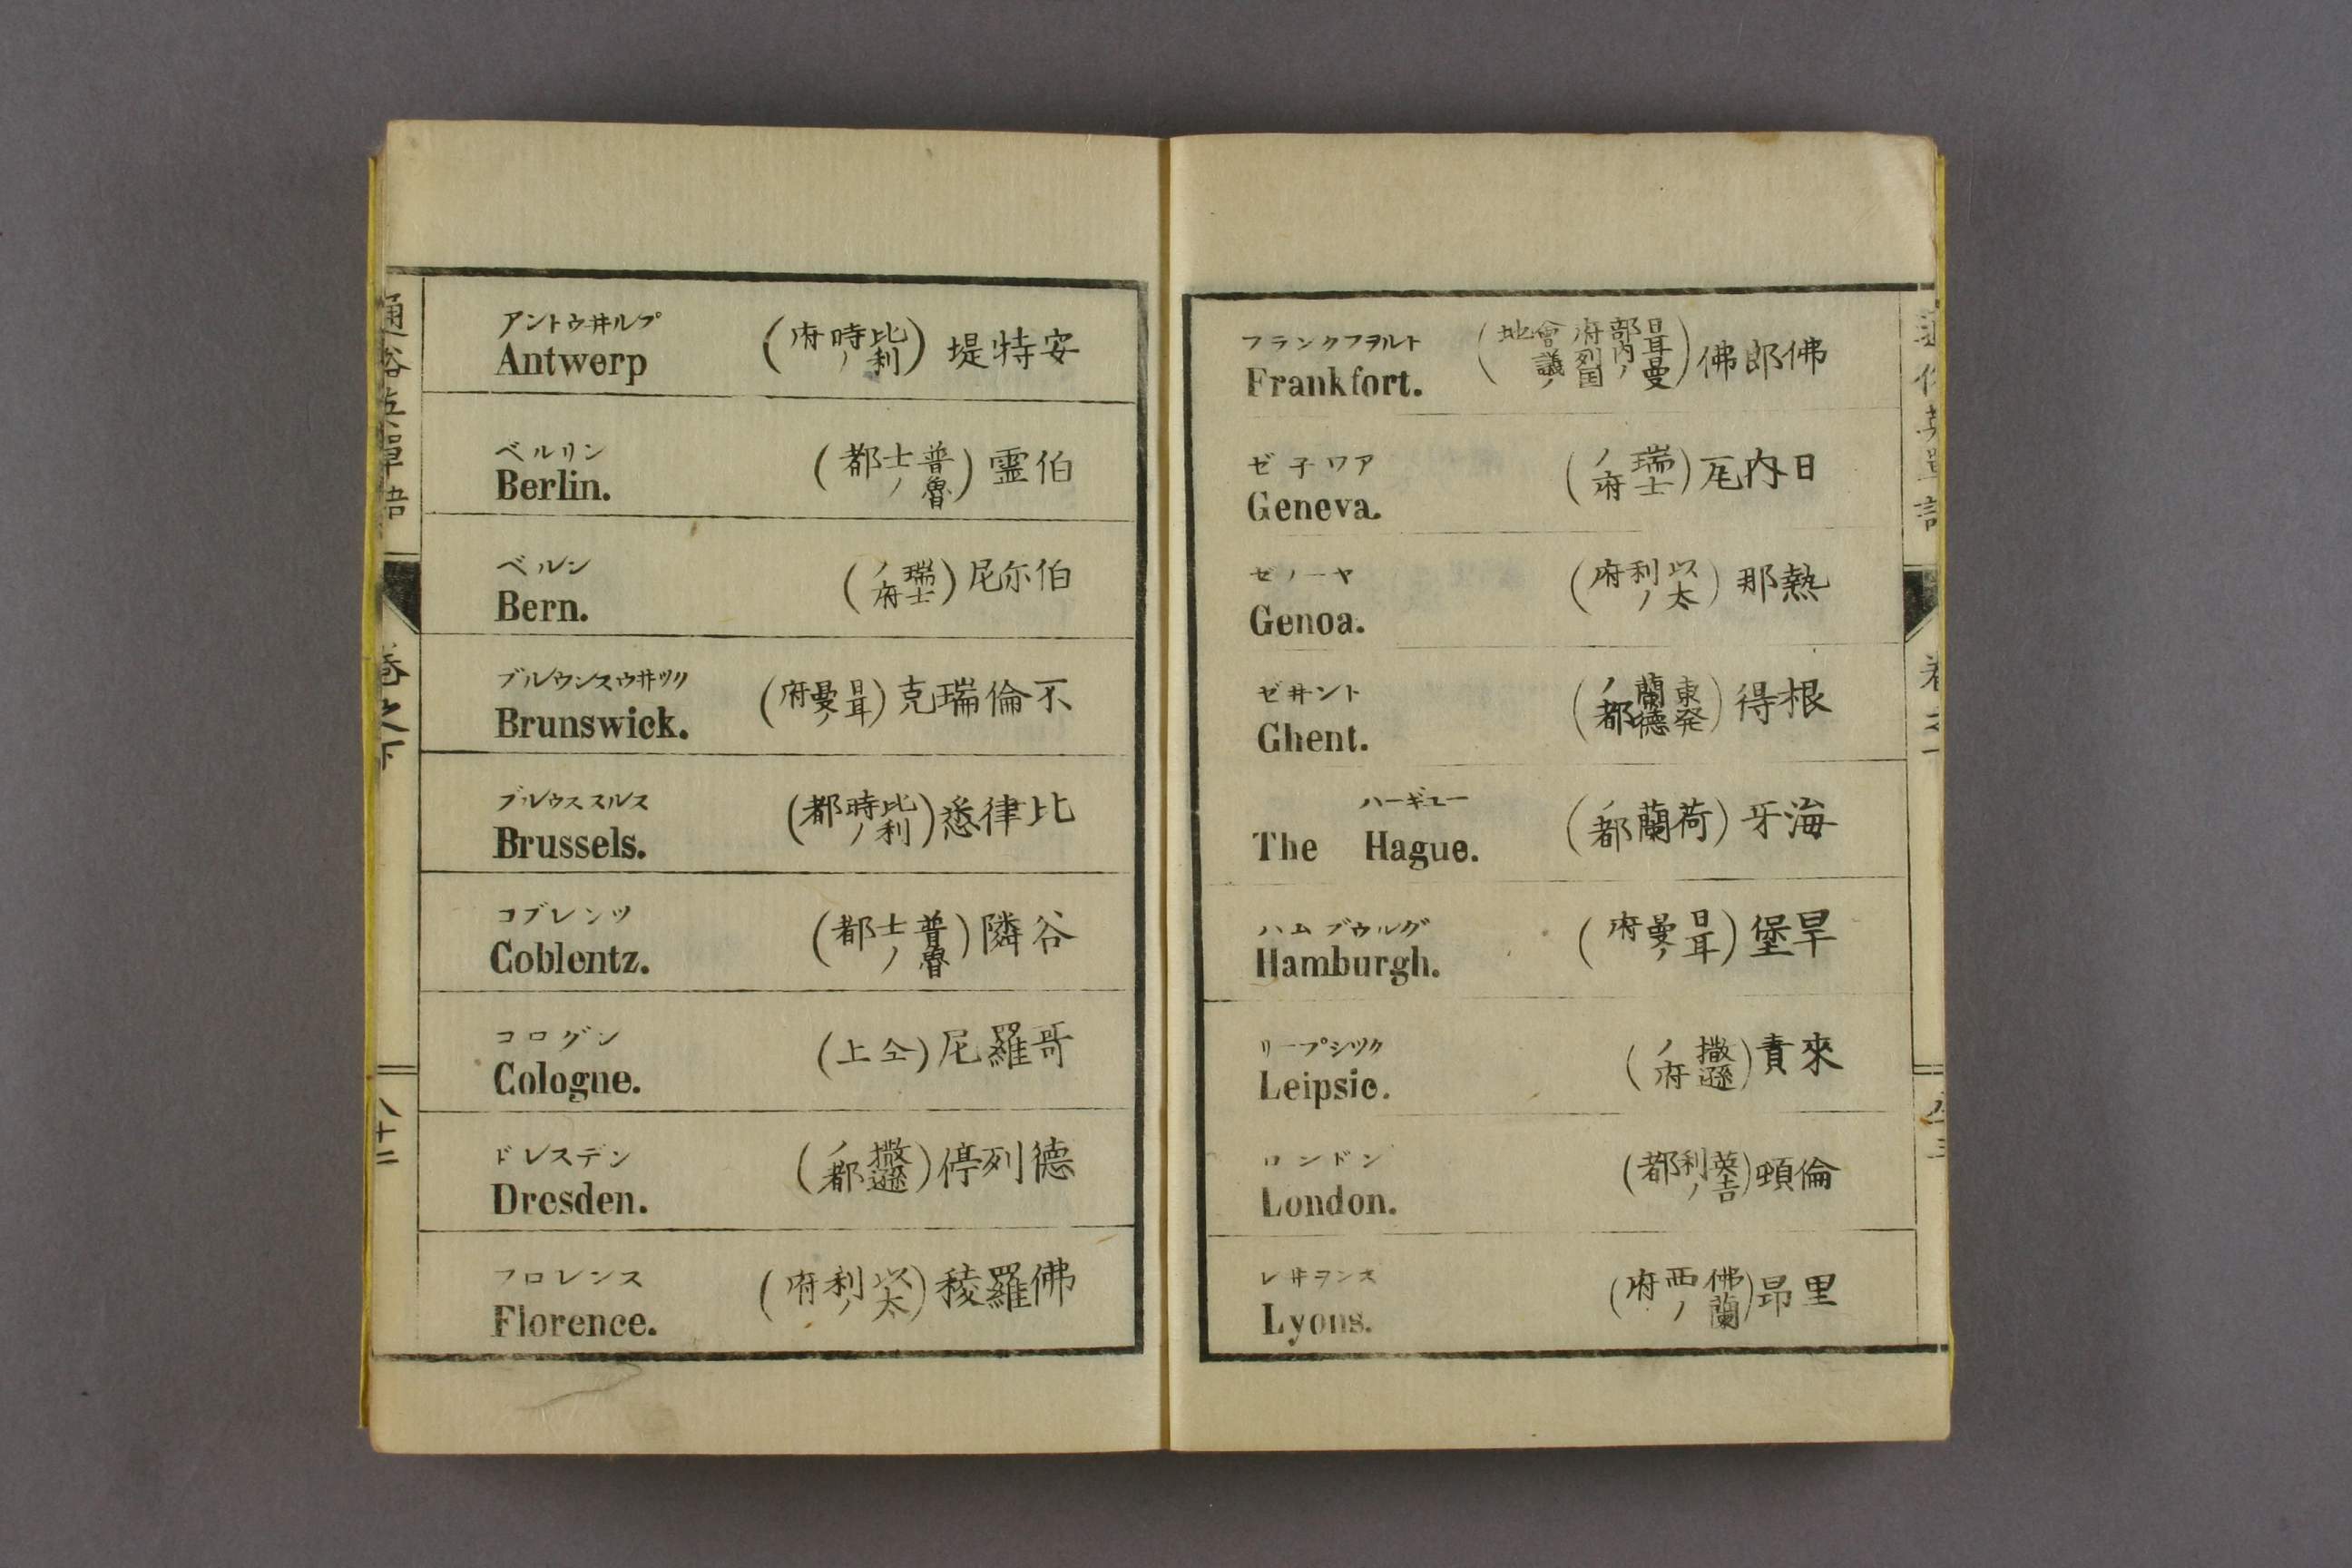 アントウヰルプ
Antwerp
安特堤(比利時ノ府)
ベルリン
Berlin.
伯霊(普魯士ノ都)
ベルン
Bern.
伯尓尼(瑞士ノ府)
ブルウンスウヰツク
Brunswick.
不倫瑞克(日耳曼ノ府)
ブルウススルス
Brussels.
比律悉(比利時ノ都)
コブレンツ
Coblentz.
谷隣(普魯士ノ都)
コログン
Cologne.
哥羅尼(仝上)
ドレスデン
Dresden.
德列停(撒遜ノ都)
フロレンス
Florence.
佛羅稜(以太利ノ府)
通俗英單語
卷之下
八十二
フランクフヲルト
Frankfort.
佛郎佛(日耳曼部内ノ府列国會議ノ地)
ゼ子ワア
Geneva.
日内尼(瑞士ノ府)
ゼノーヤ
Genoa.
熱那(以太利ノ府)
ゼヰント
Ghent.
根得(東発蘭德ノ都)
ハーギュー
The Hague.
海牙(荷蘭ノ都)
ハムブウルグ
Hamburgh.
旱堡(日耳曼ノ府)
リープシツク
Leipsic.
來責(撒遜ノ府)
ロンドン
London.
倫頓(英吉利ノ都)
レヰヲンス
Lyons.
里昂(佛蘭西ノ府)